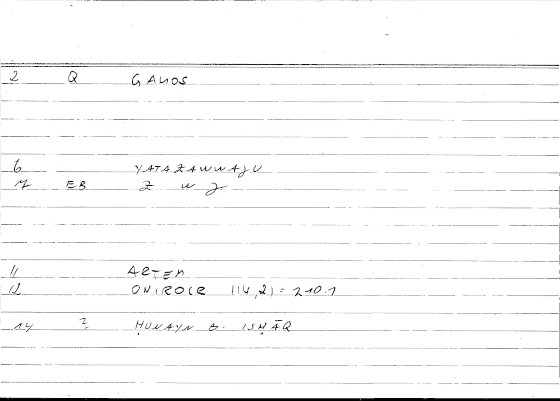 2 Q GAMOS
6 YATAZAWWAJU
7 EB Z W J
11 ARTEM
12 ONIROCR (14,2) = 210.1
14 ? ḤUNAYN B. ISḤĀQ